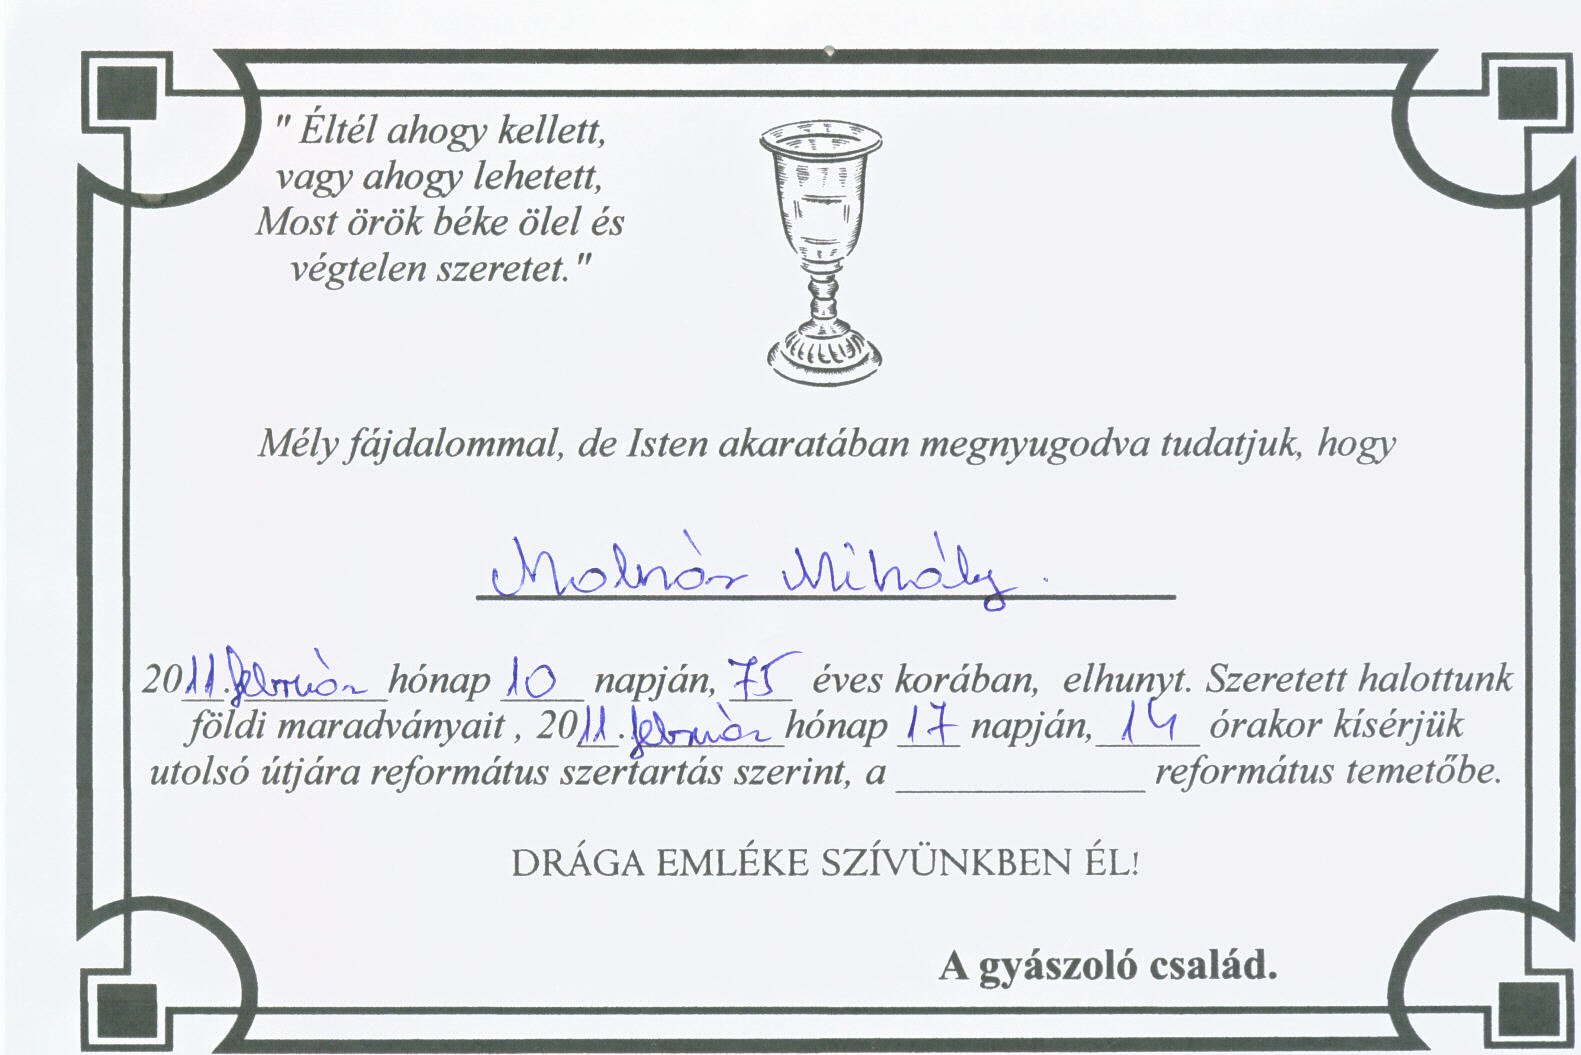 " Éltél ahogy kellett,
vagy ahogy lehetett,
Most örök béke ölel és
végtelen szeretet."
Mély fájdalommal, de Isten akaratában megnyugodva tudatjuk, hogy
Molnár Mihály.
2011.február hónap 10 napján, 75 éves korában, elhunyt. Szeretett halottunk
földi maradványait , 2011.február hónap 17 napján, 14 órakor kísérjük
utolsó útjára református szertartás szerint, a ______________ református temetőbe.
DRÁGA EMLÉKE SZÍVÜNKBEN ÉL!
A gyászoló család.